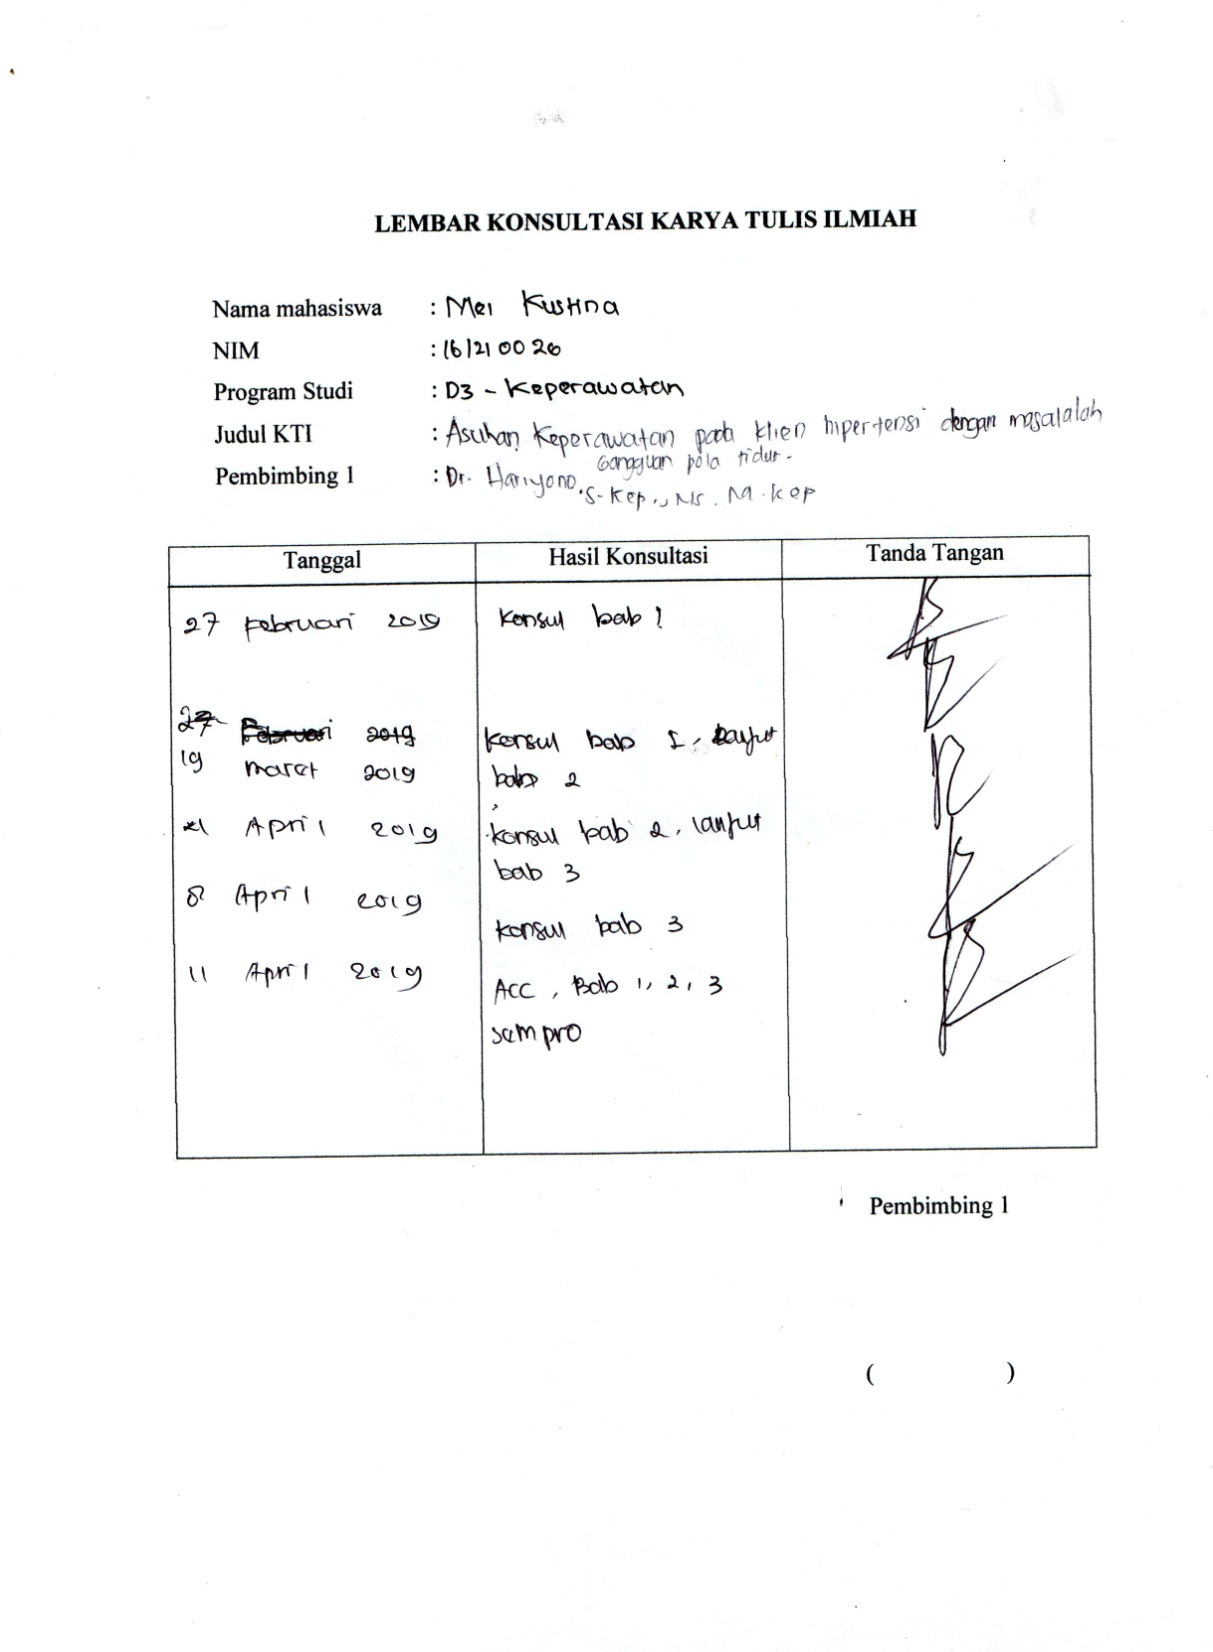 LEMBAR KONSULTASI KARYA TULIS ILMIAH
Nama mahasiswa : Mei Kustina
NIM : 161210026
Program Studi : D3 - Keperawatan
Judul KTI : Asuhan Keperawatan pada klien hipertensi dengan masalalah
Gangguan pola tidur.
Pembimbing 1 : Dr. Hariyono, S-Kep., Ns. M.Kep
Tanggal Hasil Konsultasi Tanda Tangan
27 Februari 2019 Konsul bab 1
27 Februari 2019 Konsul bab 1, Lanjut
19 maret 2019 bab 2
1 April 2019 Konsul bab 2, lanjut
bab 3
8 April 2019
Konsul bab 3
11 April 2019
ACC, Bab 1, 2, 3
sempro
Pembimbing 1
( )